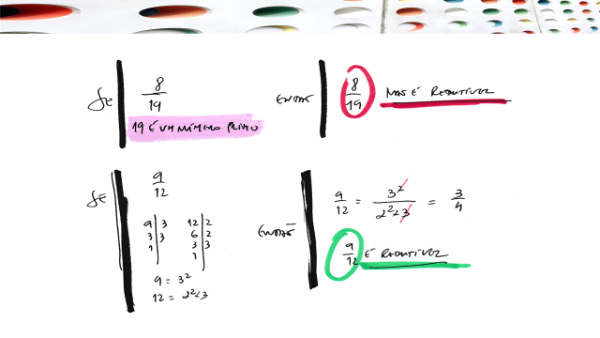 SE
8/19
19 É UM NÚMERO PRIMO
ENTÃO
8/19 NÃO É REDUTÍVEL
SE
9/12
9 | 3 12 | 2
3 | 3 6 | 2
1 3 | 3
1
9 = 3²
12 = 2²×3
ENTÃO
9/12 = 3²/2²×3 = 3/4
9/12 É REDUTÍVEL